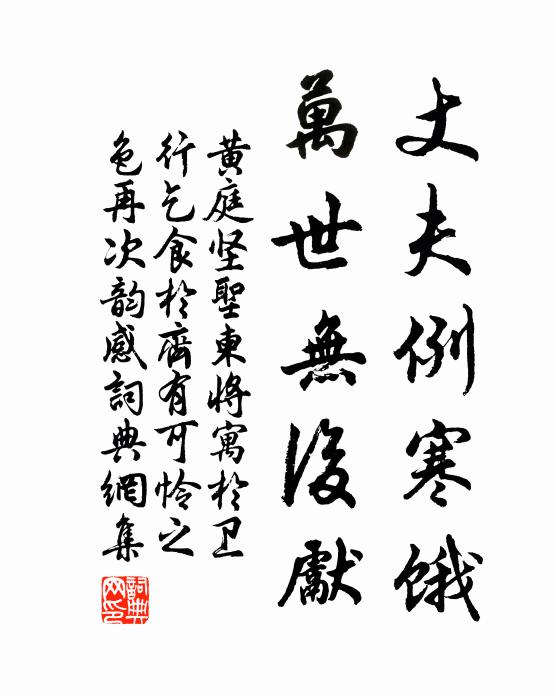 丈夫例寒餓
萬世無後獻
黃庭坚聖東將寓於卫
行乞食於齊有可怜之
色再次韵感詞典網集
詞典網印